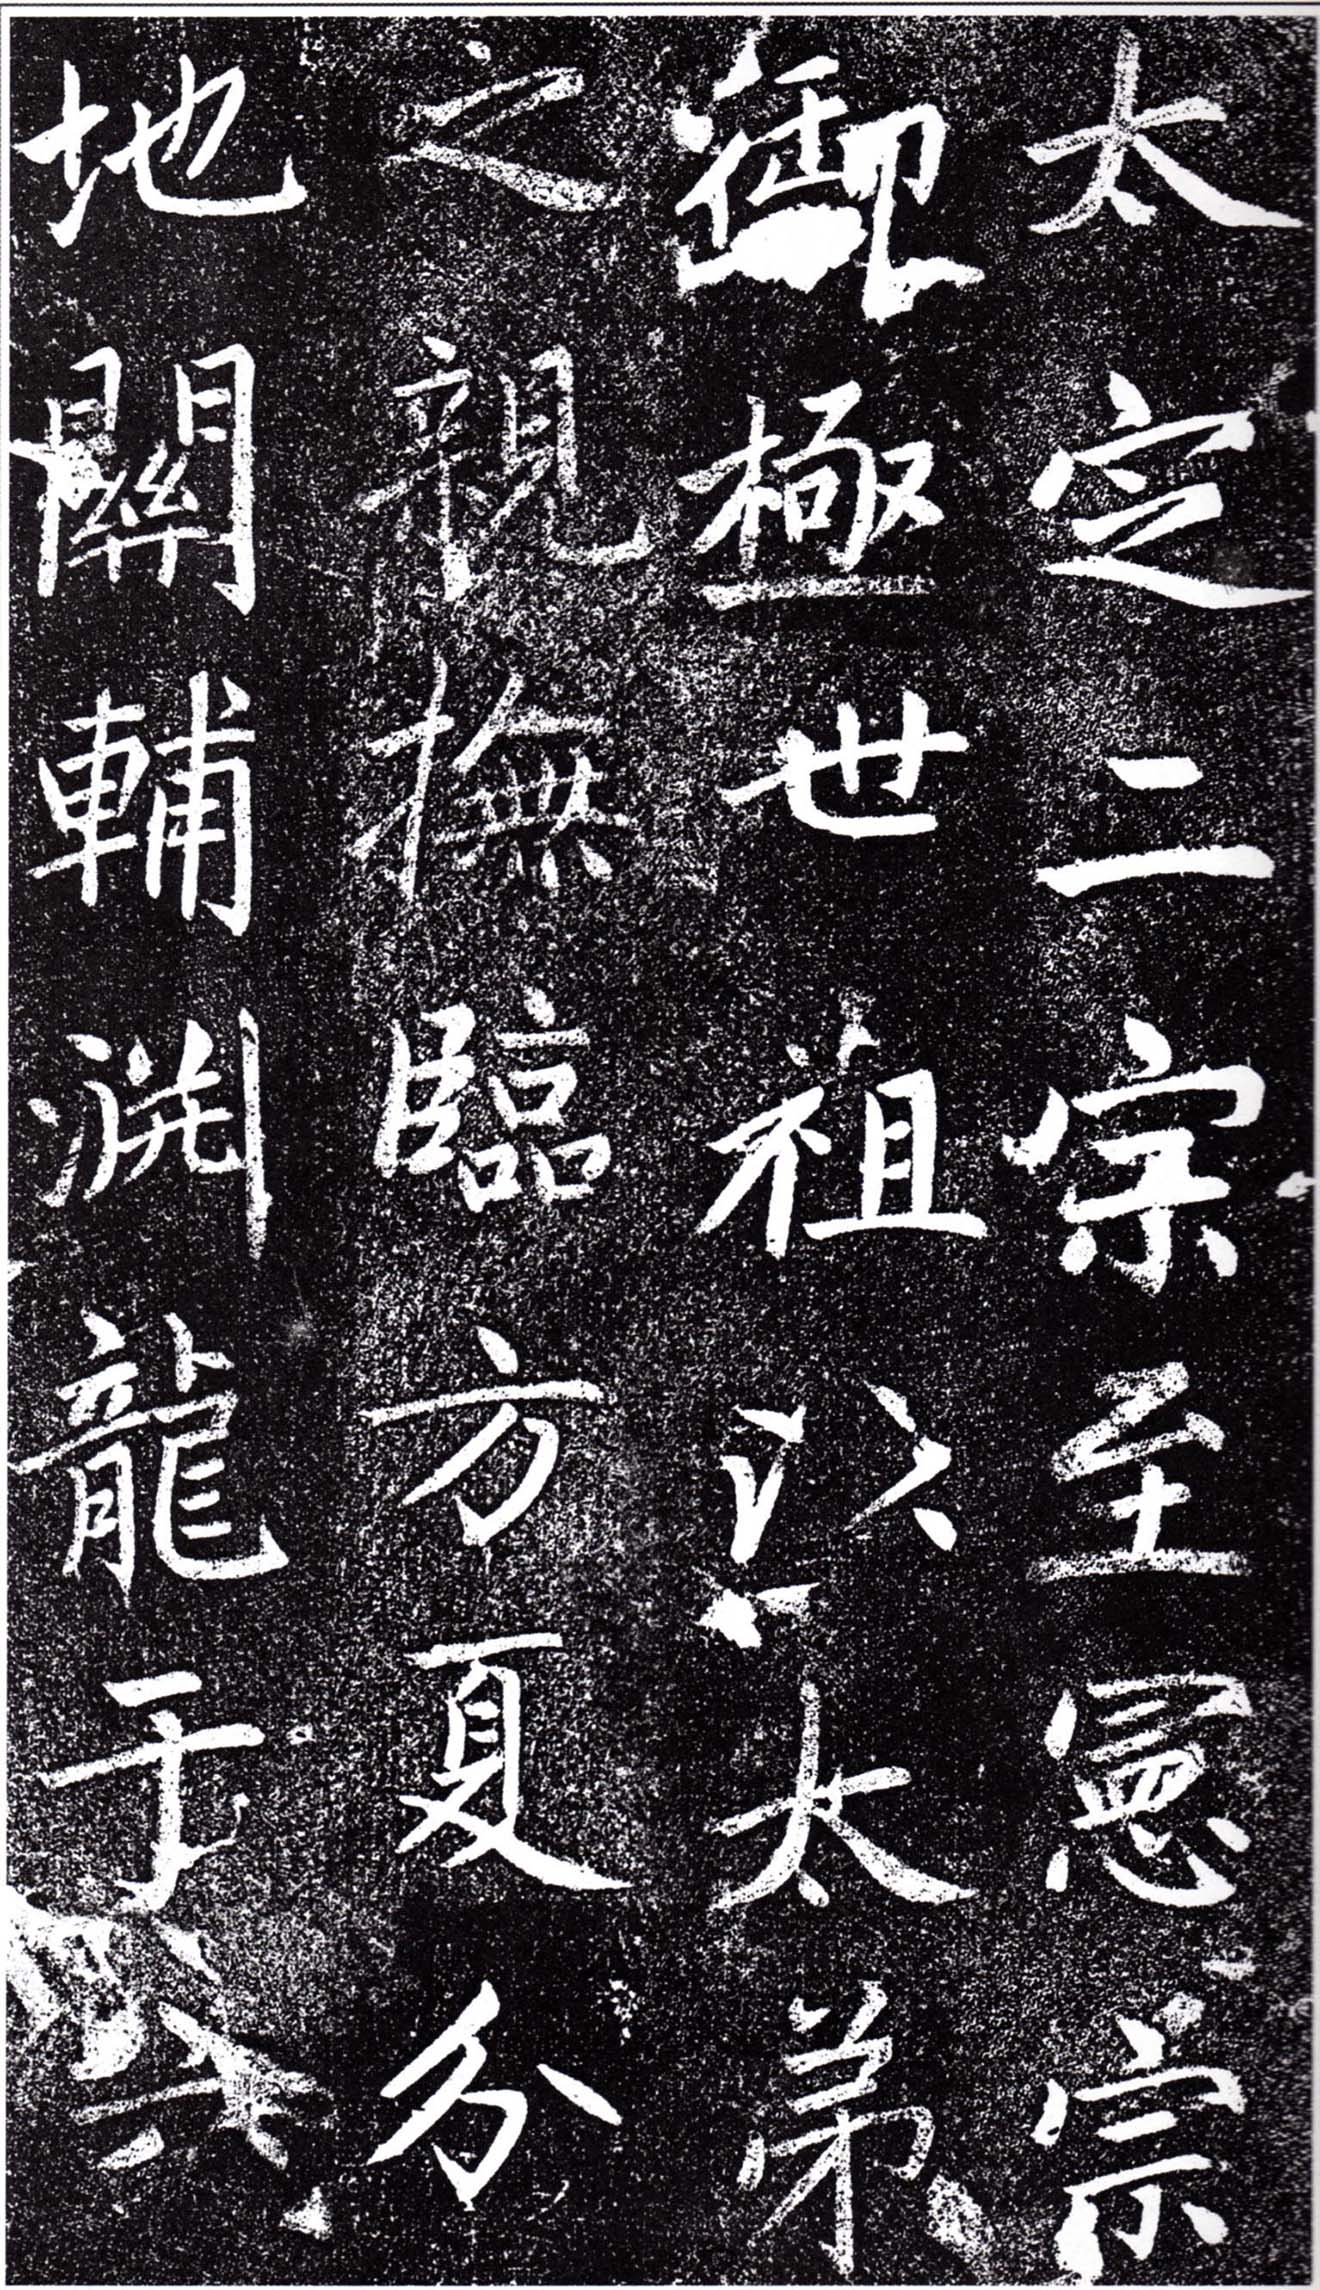 太定二宗至憲宗
御極世祖以太弟
之親撫臨方夏分
地關輔淵龍于